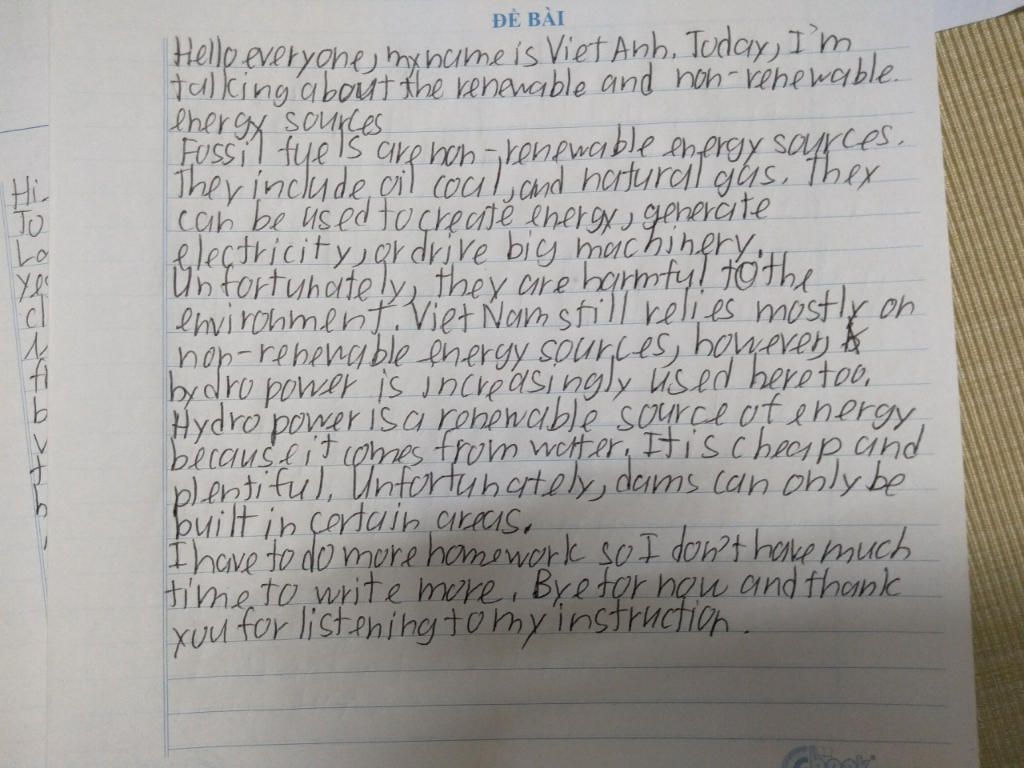 ĐỀ BÀI
Hello everyone, my name is Viet Anh. Today, I'm
talking about the renewable and non-renewable
energy sources
Fossil fuels are non-renewable energy sources.
They include oil coal, and natural gas. They
can be used to create energy, generate
electricity, or drive big machinery.
Unfortunately, they are harmful to the
environment. Viet Nam still relies mostly on
non-renewable energy sources, however,
hydro power is increasingly used here too.
Hydro power is a renewable source of energy
because it comes from water. It is cheap and
plentiful. Unfortunately, dams can only be
built in certain areas.
I have to do more homework so I don't have much
time to write more. Bye for now and thank
you for listening to my instruction.
Hi
To
La
yes
cl
N
fi
b
v
t
h